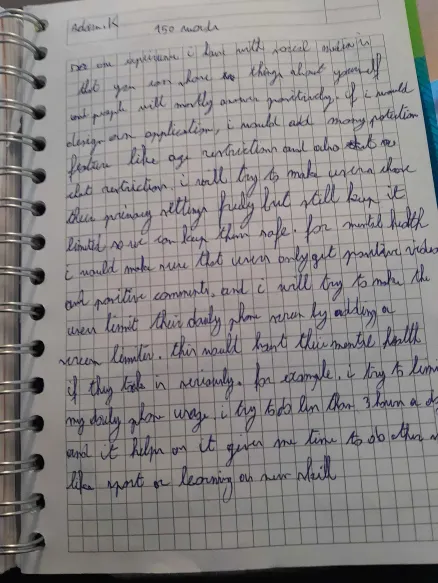 Adam.K 150 words
one experience i have with social media is
that you can share things about yourself
and people will mostly answer positively. if i would
design own application, i would add many protection
feature like age restriction and also
chat restriction. i will try to make users chose
their privacy settings freely but still keep it
limited so we can keep them safe. for mental health
i would make sure that users only get positive video
and positive comments. and i will try to make the
users limit their daily phone screen by adding a
screen limiter. this would their mental health
if they take in seriously. for example, i try to
my daily phone usage. i try to do less than 3 hours a
and it helps it gives me time to do other
like sport or learning an new skill